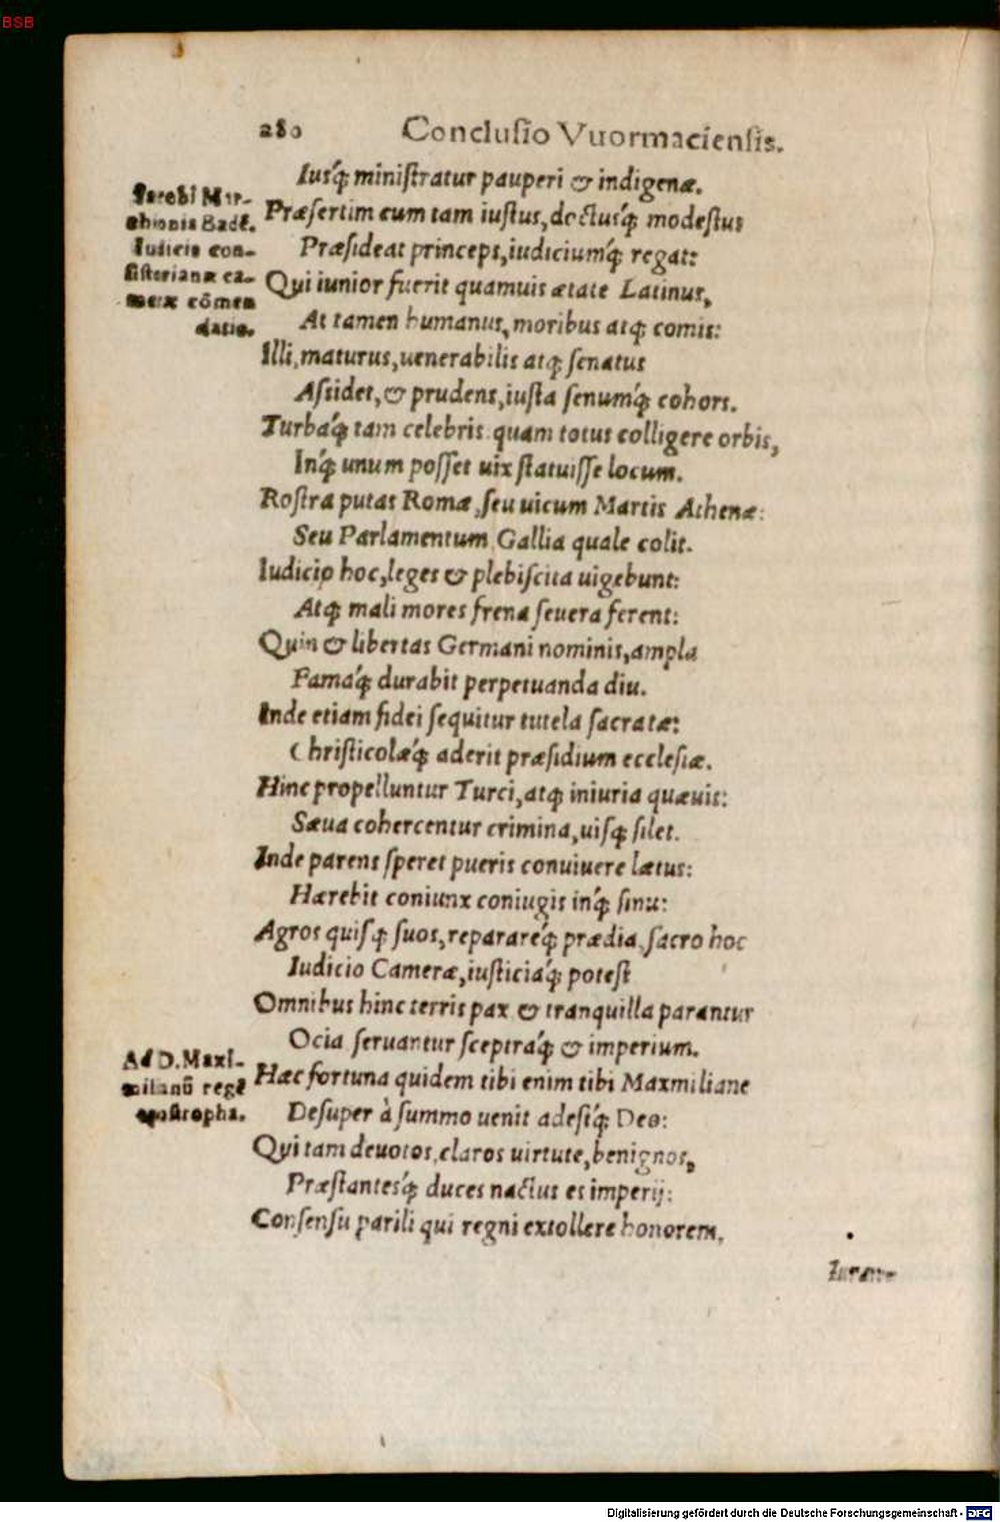 BSB
280 Conclusio Vuormaciensis.
Iusq́; ministratur pauperi & indigenæ.
Iacobi Mar-
chionis Badē.
Iudicis con-
sistorianæ ca-
meræ cōmen
datio.
Præsertim cum tam iustus, doctusq́; modestus
Præsideat princeps, iudiciumq́; regat:
Qui iunior fuerit quamuis ætate Latinus,
At tamen humanus, moribus atq; comis:
Illi, maturus, uenerabilis atq; senatus
Assidet, & prudens, iusta senumq́; cohors.
Turbaq́; tam celebris quam totus colligere orbis,
Inq́; unum posset uix statuisse locum.
Rostra putas Romæ, seu uicum Martis Athenæ:
Seu Parlamentum Gallia quale colit.
Iudicio hoc, leges & plebiscita uigebunt:
Atq; mali mores frena seuera ferent:
Quin & libertas Germani nominis, ampla
Famaq́; durabit perpetuanda diu.
Inde etiam fidei sequitur tutela sacratæ:
Christicolæq́; aderit præsidium ecclesiæ.
Hinc propelluntur Turci, atq; iniuria quæuis:
Sæua cohercentur crimina, uisq; silet.
Inde parens speret pueris conuiuere lætus:
Hærebit coniunx coniugis inq́; sinu:
Agros quisq; suos, reparareq́; prædia, sacro hoc
Iudicio Cameræ, iusticiaq́; potest
Omnibus hinc terris pax & tranquilla parantur
Ocia seruantur sceptraq́; & imperium.
Ad D. Maxi-
milianū regē
apostropha.
Hæc fortuna quidem tibi enim tibi Maxmiliane
Desuper à summo uenit adestq́; Deo:
Qui tam deuotos, claros uirtute, benignos,
Præstantesq́; duces nactus es imperij:
Consensu parili qui regni extollere honorem,
Iurare
Digitalisierung gefördert durch die Deutsche Forschungsgemeinschaft - DFG